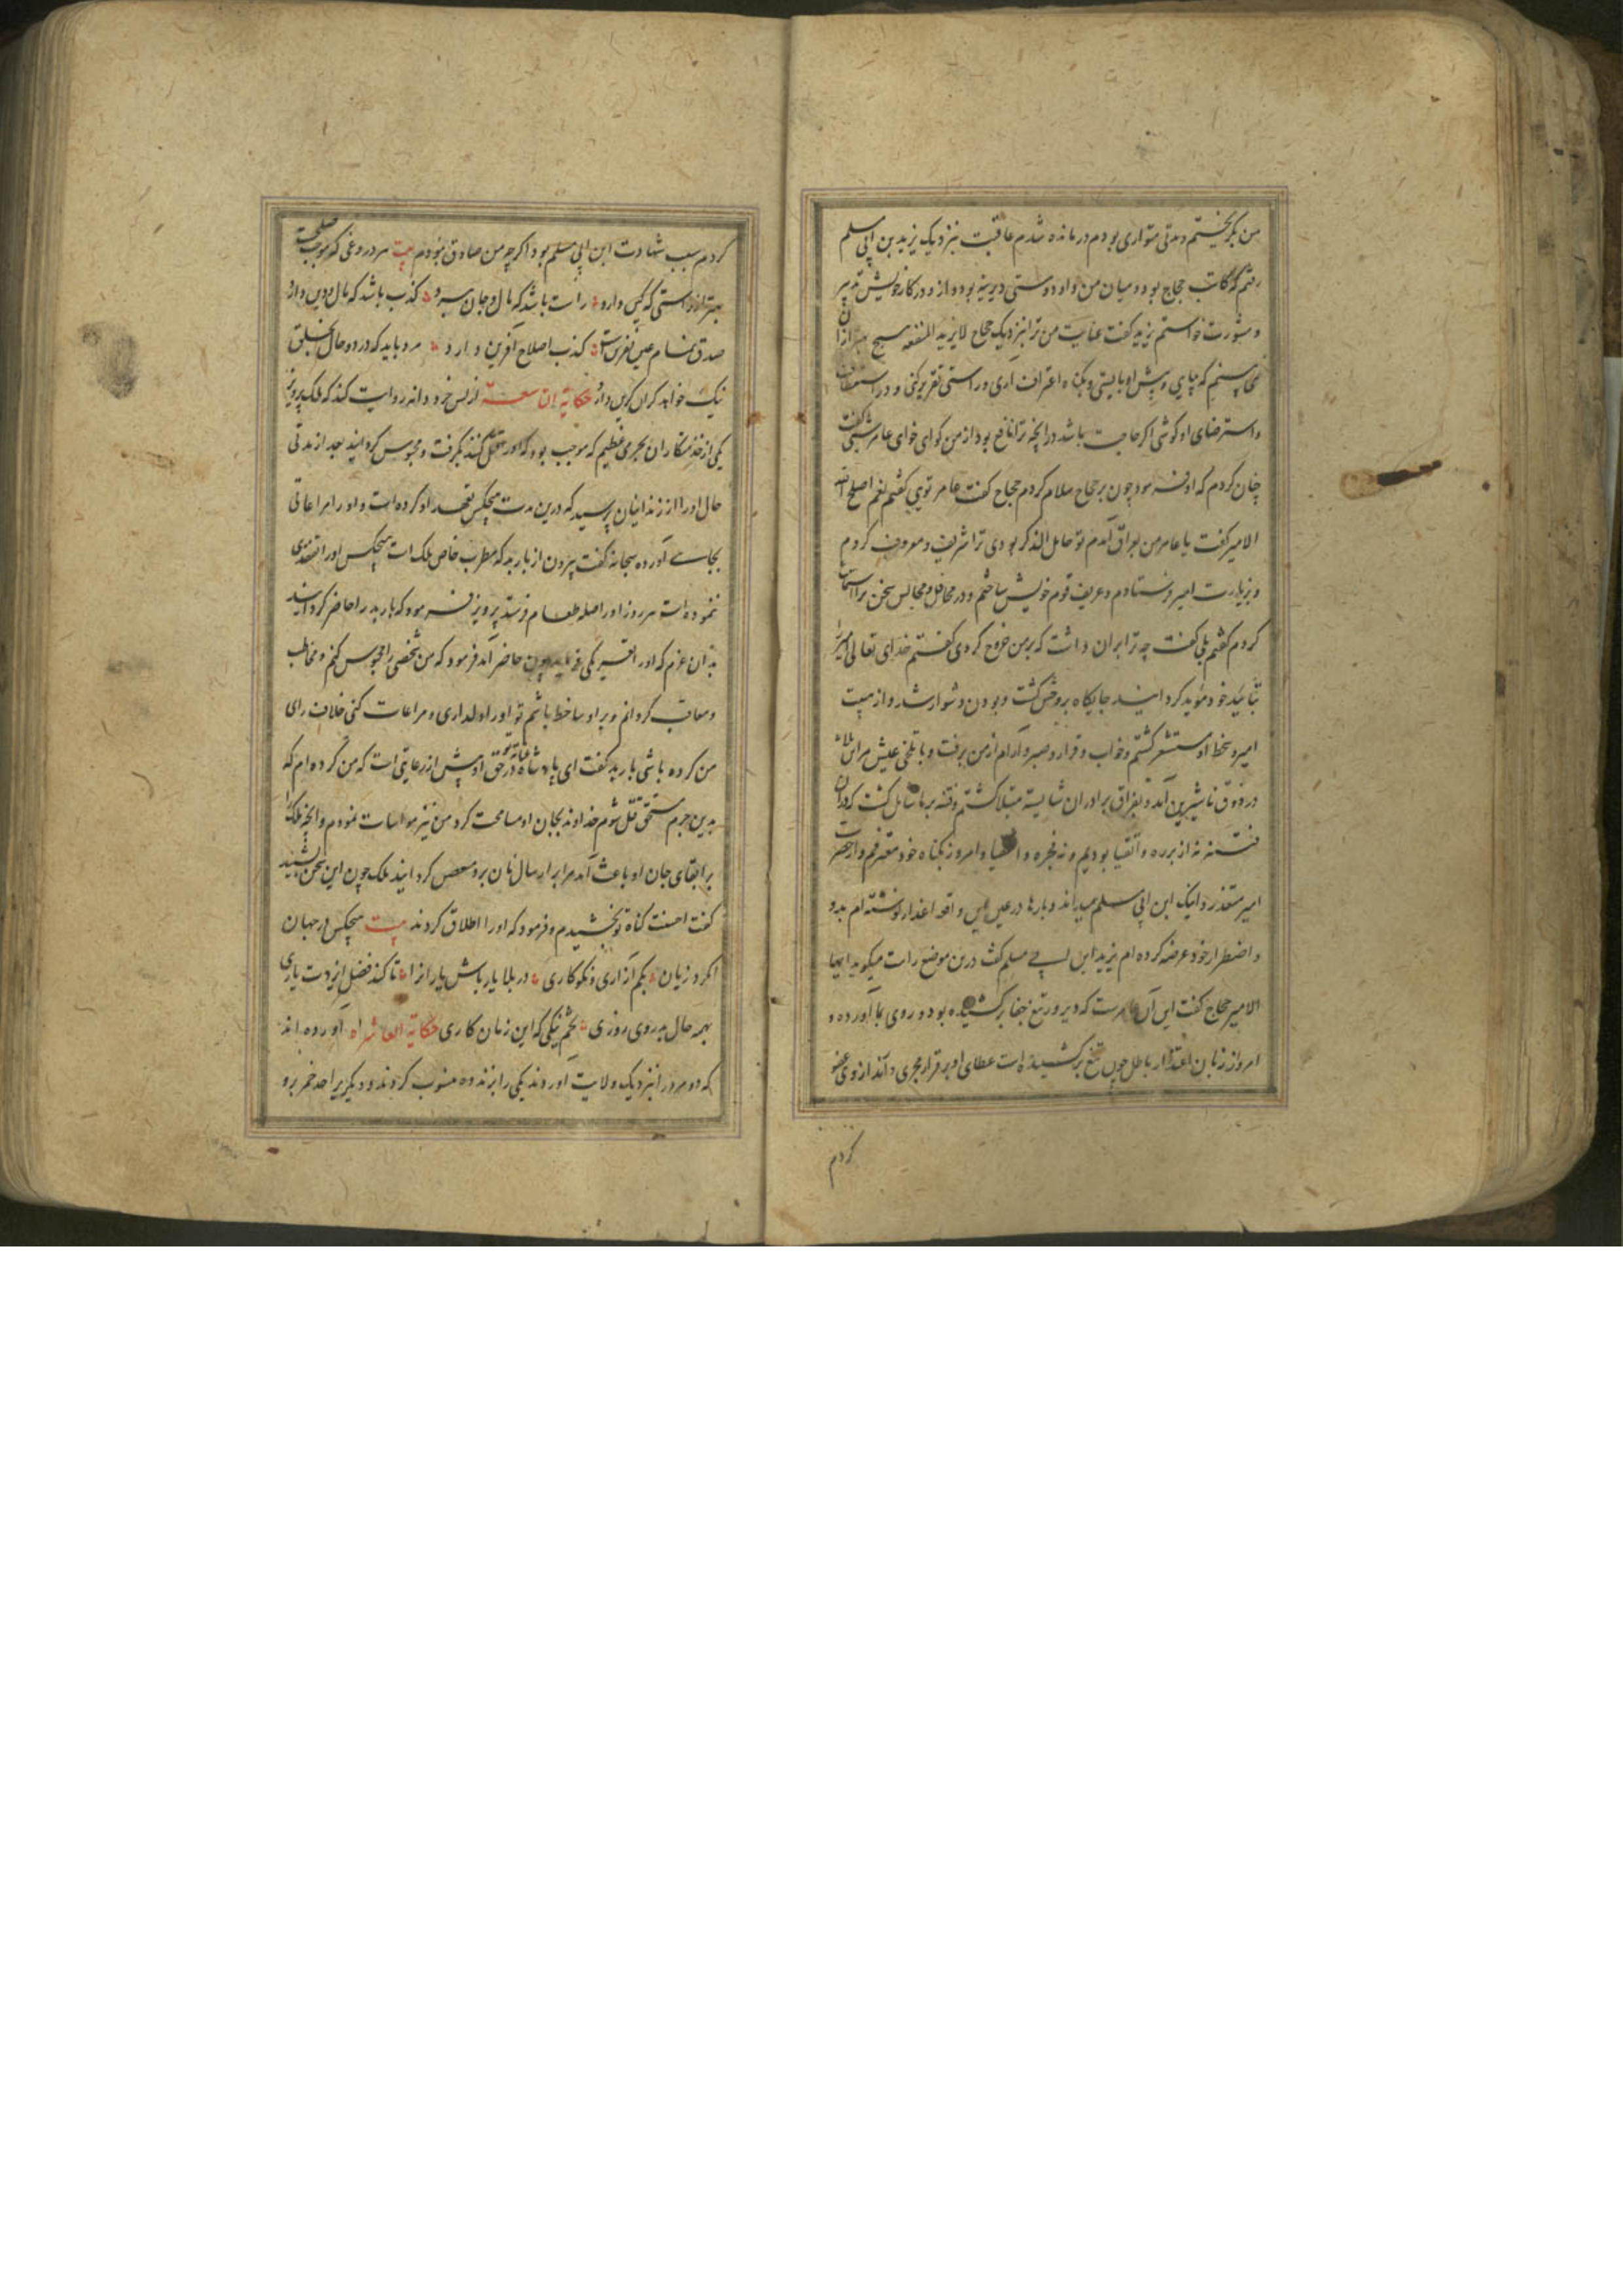 من بگریختم و مدتی متواری بودم درمانده شدم عاقبت بنزدیک یزید بن ابی مسلم
رفتم که کاتب حجاج بود و میان من و او دوستی دیرینه بود و از و در کار خویش تدبیر
و مشورت خواستم یزید گفت عنایت من ترا نزدیک حجاج لا یزید المنفعه هیچ بهتر از آن
نمی‌بینم که بپای و پیش او بایستی و بگناه اعتراف آری و راستی تقریر کنی و در استعطاف
و استرضای او کوشی اگر حاجت باشد در آنچه ترا نافع بود از من گوای خوای عامر شعبی گفت
چنان کردم که او فرمود چون بر حجاج سلام کردم حجاج گفت عامر تویی گفتم نعم اصلح الله
الامیر گفت یا عامر من بعراق آمدم تو خامل الذکر بودی ترا شریف و معروف کردم
و بزیارت امیر فرستادم و عریف قوم خویش ساختم و در محافل و مجالس سخن ترا استماع
کردم گفتم بلی گفت چه ترا بران داشت که بر من خروج کردی گفتم خدای تعالی امیر را
بتأیید خود مؤید گرداند جایگاه بر وحش گشت و بودن دشوار شد و از هیبت
امیر و سخط او مستشعر گشتم و خواب و قرار و صبر و آرام از من برفت و با تلخی عیش مرا
در ذوق ناشیرین آمد و بفراق برادران شایسته مبتلا گشتم و فتنه بر ما شامل گشت که در آن
فتنه نه از برره و اتقیا بودیم و نه فجره و اشقیا و امروز بگناه خود معترفم و از حضرت
امیر معتذر و اینک ابن ابی مسلم میداند و بارها در عین این واقعه اعذار نوشته‌ام بدو
و اضطرار خود عرضه کرده‌ام یزید ابن ابی مسلم گفت درین موضع راست میگوید ایها
الامیر حجاج گفت این آن عامرست که دیروز تیغ جفا برکشیده بود و روی بما آورده و
امروز زبان اعتذار باطل چون تیغ برکشیده است عطای او بر قرار مجری دانند از وی عفو
کردم
کردم بسبب شهادت ابن ابی مسلم بود اگر چه من صادق نبودم بیت هر دروغی که موجب صلحست
بهتر از راستی که کین دارد راست باشد که مال و جان ببرد کذب باشد که مال و دین دارد
صدق نمام عین نفرین است کذب اصلاح آفرین دارد مرد باید که در دو حال بخلق
نیک خواهد گر آن گر این دارد حکایة التاسعه از نس خرد دانه روایت کند که ملک پرویز
یکی از خدمتکاران بجرمی عظیم که موجب بود که او را قتل کنند بگرفت و محبوس گردانید بعد از مدتی
حال او را از زندانبان پرسید که درین مدت هیچکس تعهد او کرده است و او را مراعاتی
بجای آورده سجانه گفت بیرون از باربد که مطرب خاص ملک است هیچکس او را تفقدی
ننموده است هر روز او را صله طعام فرستد پرویز فرمود که باربد را حاضر گردانند
بدان عزم که او را تعزیر یکی فرماید چون حاضر آمد فرمود که من شخصی را محبوس کنم و مخاطب
و معاقب گردانم و بر او ساخط باشم تو او را دلداری و مراعات کنی خلاف رای
من کرده باشی باربد گفت ای پادشاه عنایت تو در حق او بیش از رعایتی است که من کرده‌ام که
بدین جرم مستحق قتل شوم خداوند بجان او مسامحت کرد من نیز مواسات نمودم و آنچه ملک را
بر ابقای جان او باعث آمد مرا بر ارسال نان برو محرص گردانید ملک چون این سخن بشنید
گفت احسنت گناه تو بخشیدم و فرمود که او را اطلاق کردند بیت هیچکس در جهان
نکرد زیان بکم آزاری و نکوکاری در بلا یار باش یارانرا تا کند فضل ایزدت یاری
بهمه حال بدروی روزی تخم نیکی که این زمان کاری حکایة العاشراه آورده‌اند
که دو مرد را بنزدیک ولایت آوردند یکی را بزندقه منسوب کردند و دیگر را حد خمر برو